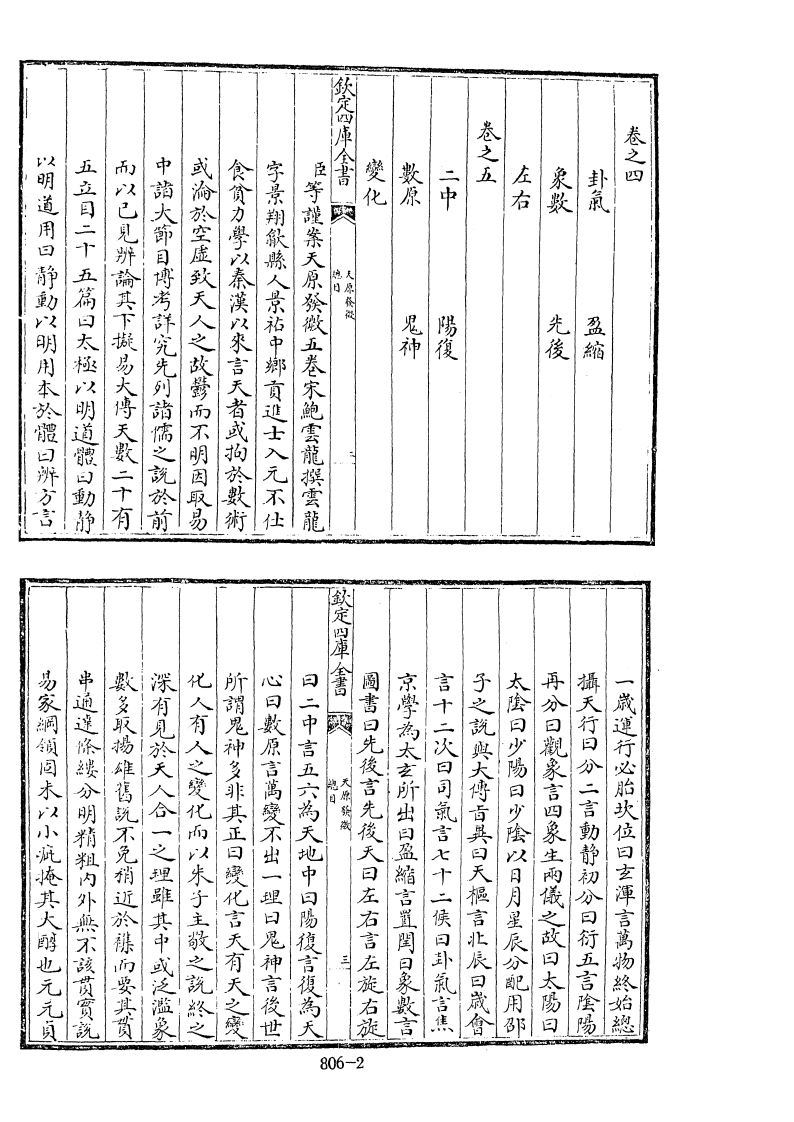 卷之四
卦氣　盈縮
象數　先後
左右
卷之五
二中　陽復
數原　鬼神
變化
欽定四庫全書
天原發微
總目
二
臣等謹案天原發微五卷宋鮑雲龍撰雲龍
字景翔歙縣人景祐中鄉貢進士入元不仕
食貧力學以秦漢以來言天者或拘於數術
或淪於空虛致天人之故鬱而不明因取易
中諸大節目博考詳究先列諸儒之說於前
而以已見辨論其下擬易大傳天數二十有
五立目二十五篇曰太極以明道體曰動靜
以明道用曰靜動以明用本於體曰辨方言
一歲運行必胎坎位曰玄渾言萬物終始總
攝天行曰分二言動靜初分曰衍五言陰陽
再分曰觀象言四象生兩儀之故曰太陽曰
太陰曰少陽曰少陰以日月星辰分配用邵
子之說與大傳旨異曰天樞言北辰曰歲會
言十二次曰司氣言七十二候曰卦氣言焦
京學為太玄所出曰盈縮言置閏曰象數言
圖書曰先後言先後天曰左右言左旋右旋
欽定四庫全書
天原發微
總目
三
曰二中言五六為天地中曰陽復言復為天
心曰數原言萬變不出一理曰鬼神言後世
所謂鬼神多非其正曰變化言天有天之變
化人有人之變化而以朱子主敬之說終之
深有見於天人合一之理雖其中或泛濫象
數多取揚雄舊說不免稍近於襍而要其貫
串通達條縷分明精粗內外無不該貫實說
易家綱領固未以小疵掩其大醇也元元貞
806-2